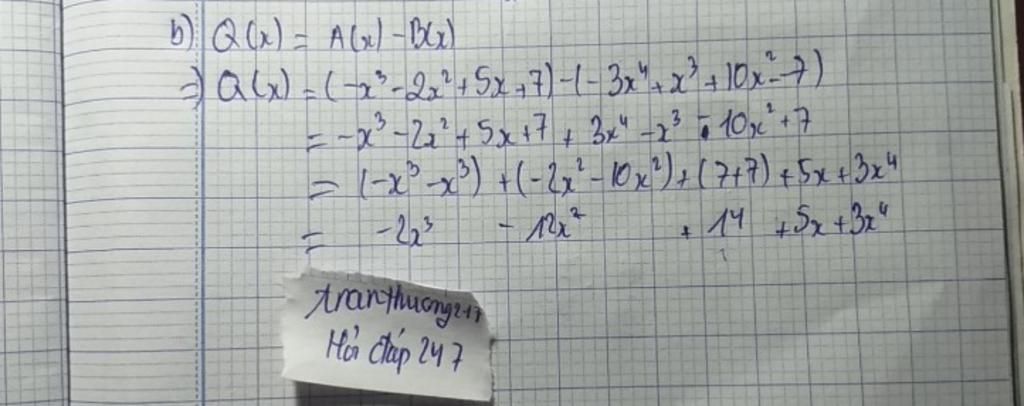 b) Q(x) = A(x) - B(x)
=> Q(x) = (-x³ - 2x² + 5x + 7) - (-3x⁴ + x³ + 10x² - 7)
= -x³ - 2x² + 5x + 7 + 3x⁴ - x³ - 10x² + 7
= (-x³ - x³) + (-2x² - 10x²) + (7+7) + 5x + 3x⁴
= -2x³ - 12x² + 14 + 5x + 3x⁴
tranthuong217
Hỏi đáp 247